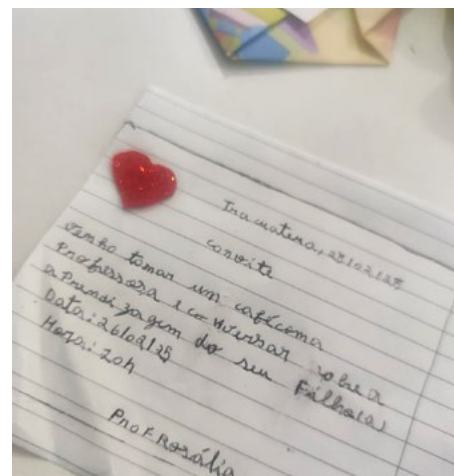 convite
Venha tomar um café com a
Professora e conversar sobre a
aprendizagem do seu Filho(a)
Data: 26/02/25
Hora: 20h
Prof. Rosália